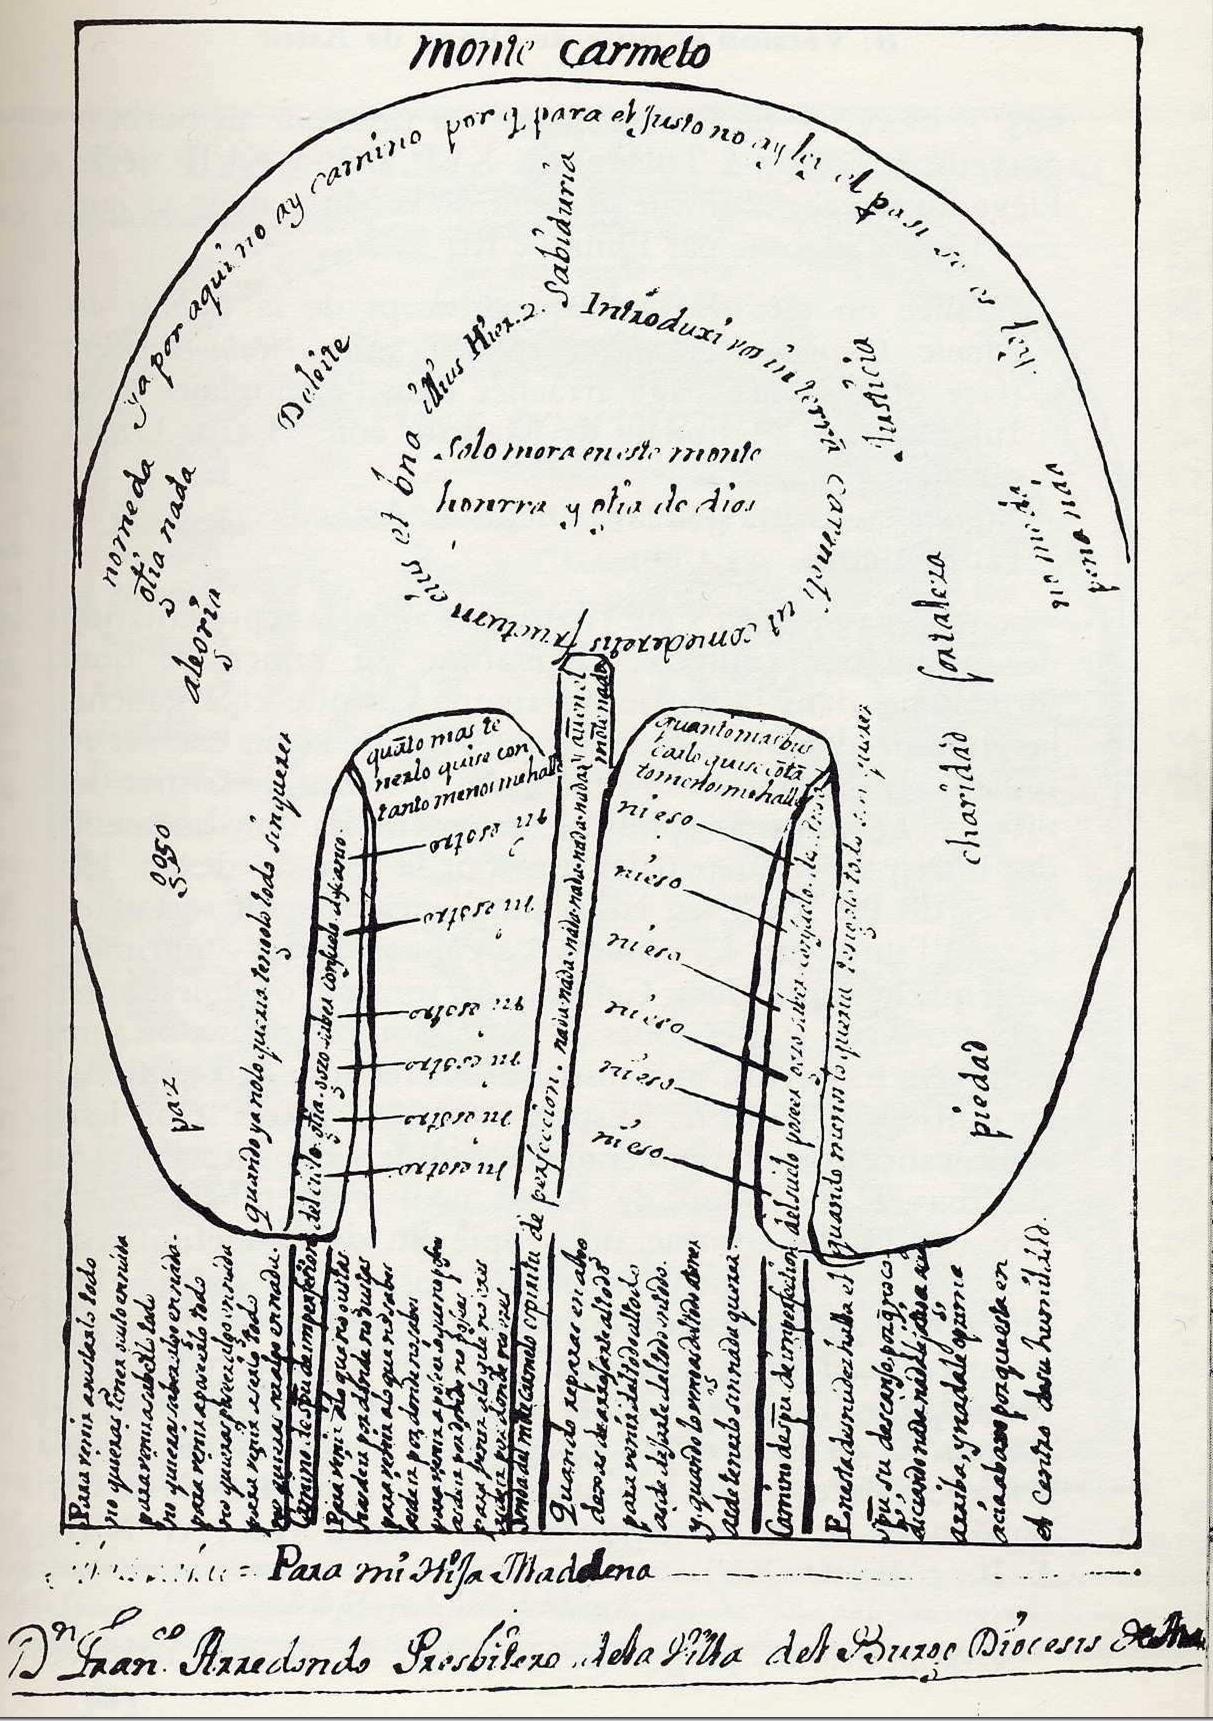 monte carmelo
ya por aquí no ay camino por q̄ para el Justo no ay ley el para si se es ley
Sabiduria
Introduxi vos in terrā carmeli ut comederetis fructum eius et bna illius Hier. 2.
Deleite
Justicia
Solo mora en este monte
honrra y glia de dios
no me da
glia nada
no me da
pena nada
alegria
fortaleza
charidad
gozo
paz
piedad
quando ya no lo quero tengolo todo sin querer
quāto mas te
nerlo quise con
tanto menos me halle
y aū en el
mōte nada
quanto mas bus
carlo quise cō tā
to menos me halle
quando menos lo queria tengolo todo sin querer
del cielo glia gozo saber consuelo descanso
ni esotro
ni esotro
ni esotro
ni esotro
ni esotro
ni esotro
nada nada nada nada nada nada
ni eso
ni eso
ni eso
ni eso
ni eso
ni eso
del suelo poseer gozo saber consuelo descanso
Para venir a gustarlo todo
no quieras tener gusto en nada
para venir a saberlo todo
no quieras saber algo en nada
para venir a poseerlo todo
no quieras poseer algo en nada
para venir a serlo todo
no quieras ser algo en nada
Camino de espū de imperfection
Para venir a lo que no gustas
has de ir por donde no gustas
para venir a lo que no sabes
as de ir por donde no sabes
para venir a poseer lo que no posees
as de ir por donde no posees
para venir a lo que no eres
as de ir por donde no eres
Senda del mōte Carmelo espiritu de perfeccion
Quando reparas en algo
dexas de arrojarte al todo
para venir del todo al todo
as de dejarte del todo en todo
y quando lo vengas del todo a tener
as de tenerlo sin nada querer
Camino de espū de imperfection
En esta desnudez halla el
espū su descanso, porq̄ no co
diciando nada, nada le fatiga
arriba, y nada le oprime
acia abaxo porque esta en
el centro de su humildad.
Para mi Hija Madalena
Dn. Franco. Arredondo Presbitero de la Villa del Burgo Diocesis